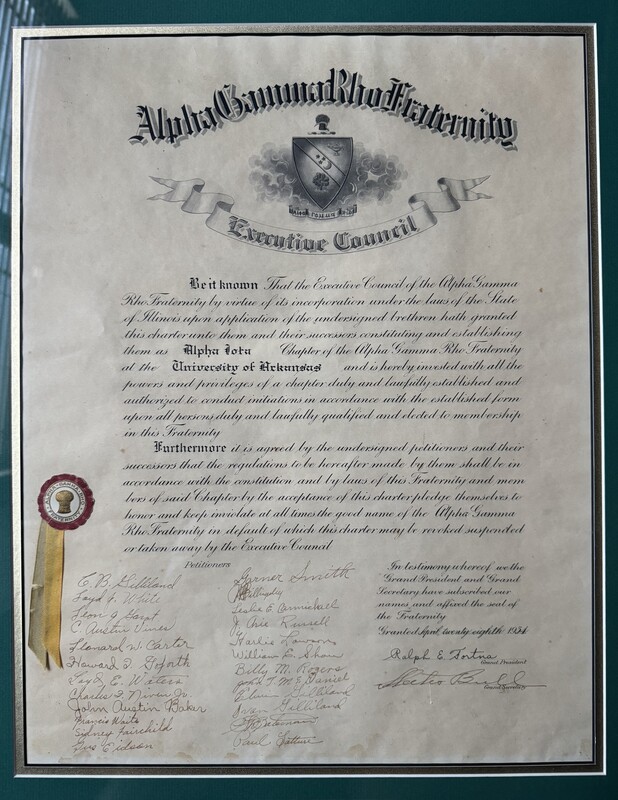 Alpha Gamma Rho Fraternity
Executive Council
Be it known That the Executive Council of the Alpha Gamma
Rho Fraternity by virtue of its incorporation under the laws of the State
of Illinois upon application of the undersigned brethren hath granted
this charter unto them and their successors constituting and establishing
them as Alpha Iota Chapter of the Alpha Gamma Rho Fraternity
at the University of Arkansas and is hereby invested with all the
powers and privileges of a chapter duly and lawfully established and
authorized to conduct initiations in accordance with the established form
upon all persons duly and lawfully qualified and elected to membership
in this Fraternity
Furthermore it is agreed by the undersigned petitioners and their
successors that the regulations to be hereafter made by them shall be in
accordance with the constitution and by laws of this Fraternity and mem
bers of said Chapter by the acceptance of this charter pledge themselves to
honor and keep inviolate at all times the good name of the Alpha Gamma
Rho Fraternity in default of which this charter may be revoked suspended
or taken away by the Executive Council
Petitioners
C. B. Gilliland
Loyd G. White
Leon
C. Austin Vines
Leonard W. Carter
Howard T. Goforth
Loyd E. Waters
Charles F. Niven Jr.
John Austin Baker
Francis Waits
Sidney Fairchild
Gus Eidson
Garner Smith
Leslie E. Carmichael
J. Orie Russell
Harlie
William E. Shaw
Billy M. Rogers
Jack T. McDaniel
Edwin Gilliland
Ivan Gilliland
Bateman
Paul
In testimony whereof we the
Grand President and Grand
Secretary have subscribed our
names and affixed the seal of
the Fraternity
Granted April twenty eighth 1934
Ralph E. Fortna
Grand President
Grand Secretary